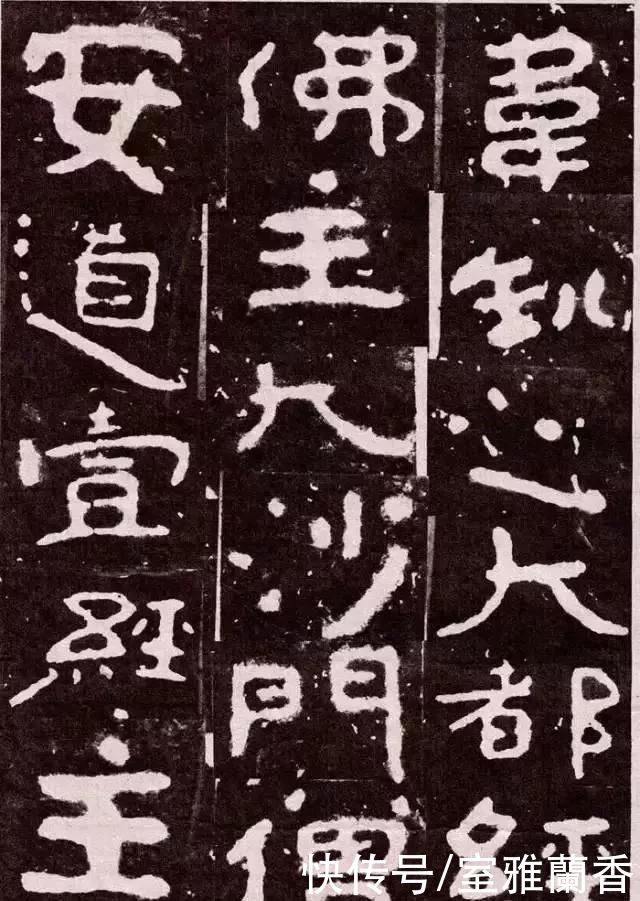 韋大都經
佛主大沙門僧
安道壹經主
快传号/室雅蘭香